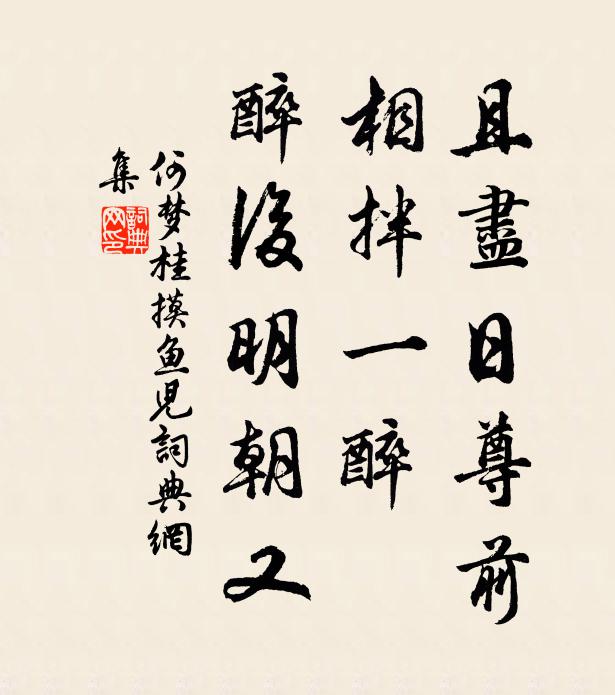 且盡日尊前
相拌一醉
醉後明朝又
何梦桂摸鱼児詞典網
集
詞典网印